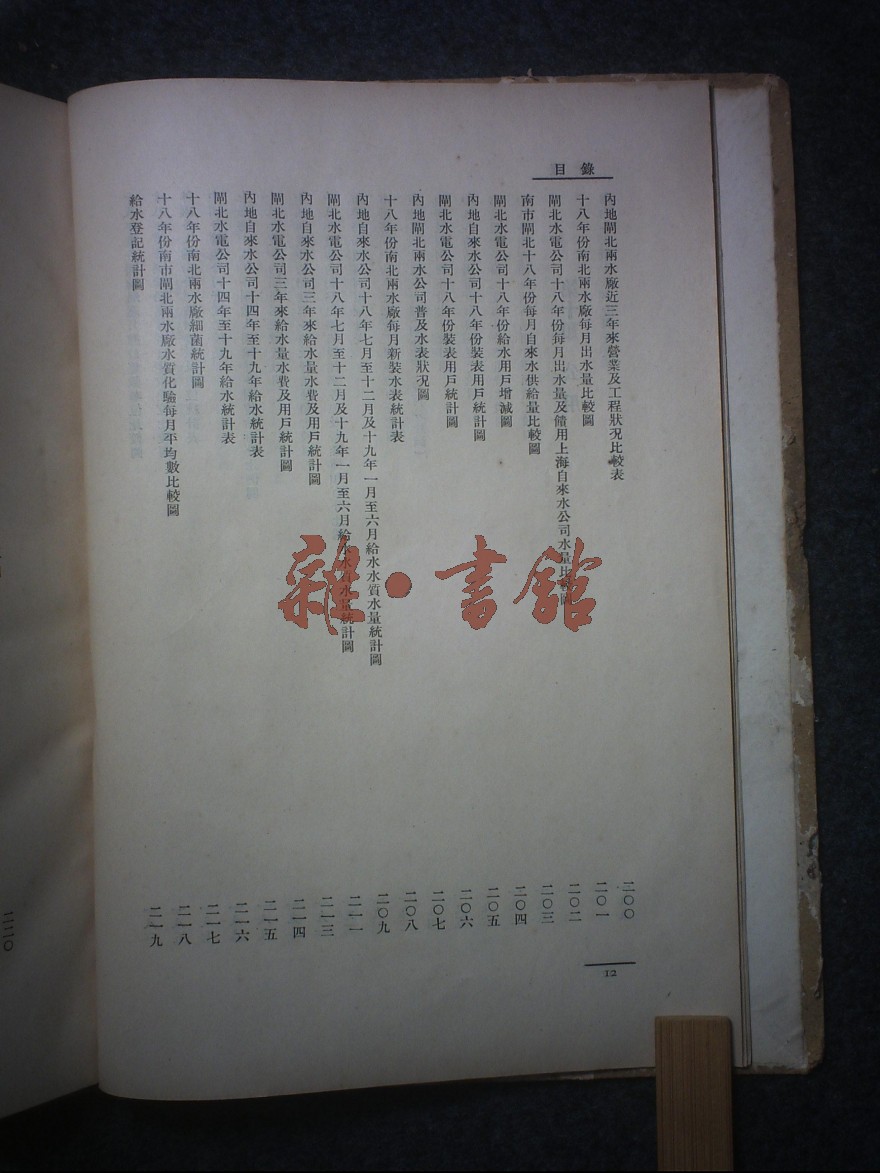 目錄
內地閘北兩水廠近三年來營業及工程狀況比較表 二〇〇
十八年份南北兩水廠每月出水量比較圖 二〇一
閘北水電公司十八年份每月出水量及饋用上海自來水公司水量比較圖 二〇二
南市閘北十八年份每月自來水供給量比較圖 二〇三
閘北水電公司十八年份給水用戶增減圖 二〇四
內地自來水公司十八年份裝表用戶統計圖 二〇五
閘北水電公司十八年份裝表用戶統計圖 二〇六
內地閘北兩水公司普及水表狀況圖 二〇七
十八年份南北兩水廠每月新裝水表統計表 二〇八
內地自來水公司十八年七月至十二月及十九年一月至六月給水水質水量統計圖 二〇九
閘北水電公司十八年七月至十二月及十九年一月至六月給水水質水量統計圖 二一一
內地自來水公司三年來給水量水費及用戶統計圖 二一三
閘北水電公司三年來給水量水費及用戶統計圖 二一四
內地自來水公司十四年至十九年給水統計表 二一五
閘北水電公司十四年至十九年給水統計表 二一六
十八年份南北兩水廠細菌統計圖 二一七
十八年份南市閘北兩水廠水質化驗每月平均數比較圖 二一八
給水登記統計圖 二一九
12
二二〇
雜·書館